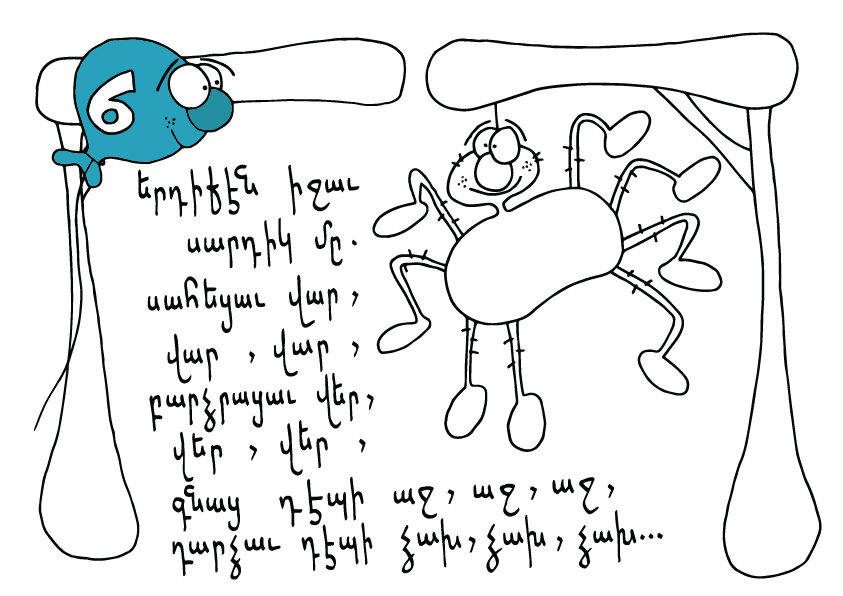 6
երդիքէն իջաւ
սարդիկ մը.
սահեցաւ վար,
վար, վար,
բարձրացաւ վեր,
վեր, վեր,
գնաց դէպի աջ, աջ, աջ,
դարձաւ դէպի ձախ, ձախ, ձախ...